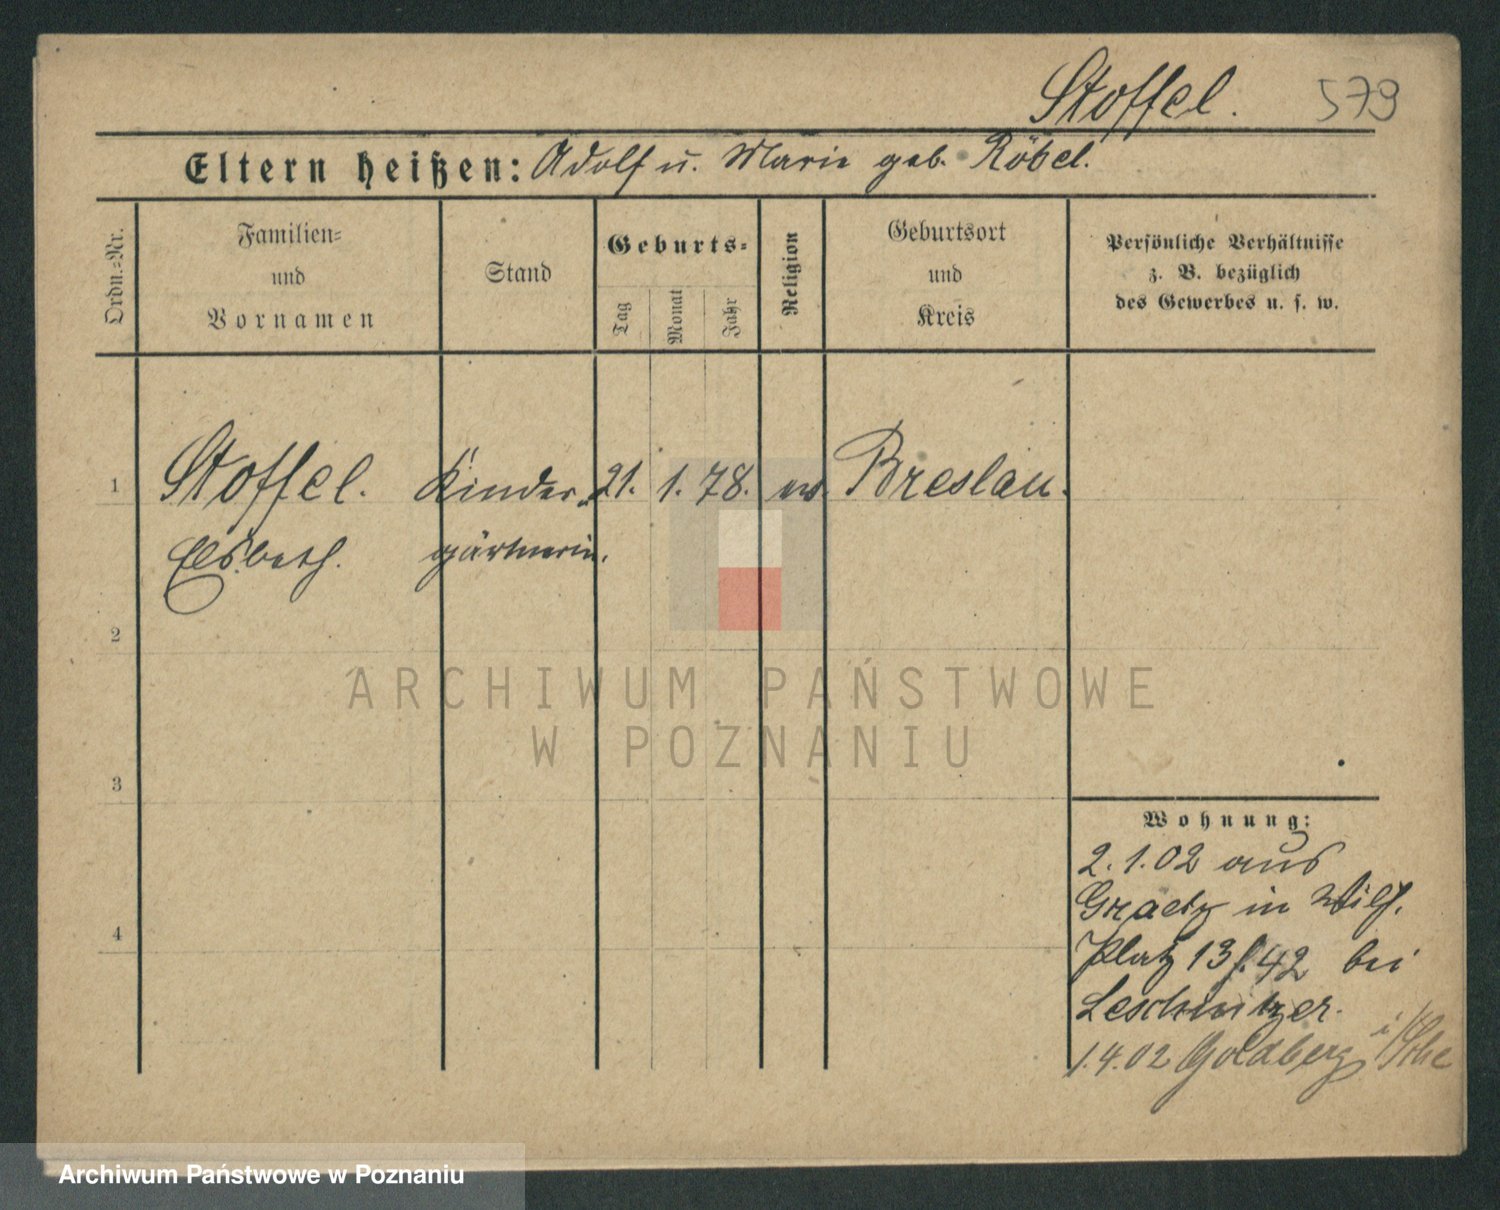 Stoffel. 579
Eltern heißen: Adolf u. Marie geb. Röbel.
Ordn.-Nr.
Familien-
und
Vornamen
Stand
Geburts-
Tag
Monat
Jahr
Religion
Geburtsort
und
Kreis
Persönliche Verhältnisse
z. B. bezüglich
des Gewerbes u. s. w.
1 Stoffel. Kinder- 21. 1. 78. ev. Breslau.
Elsbeth. gärtnerin.
2
ARCHIWUM PAŃSTWOWE
W POZNANIU
3
4
Wohnung:
2.1.02 aus
Graetz in Wilh.
Platz 13 42 bei
Leschnitzer.
1.4.02 Goldberg i/Schle
Archiwum Państwowe w Poznaniu